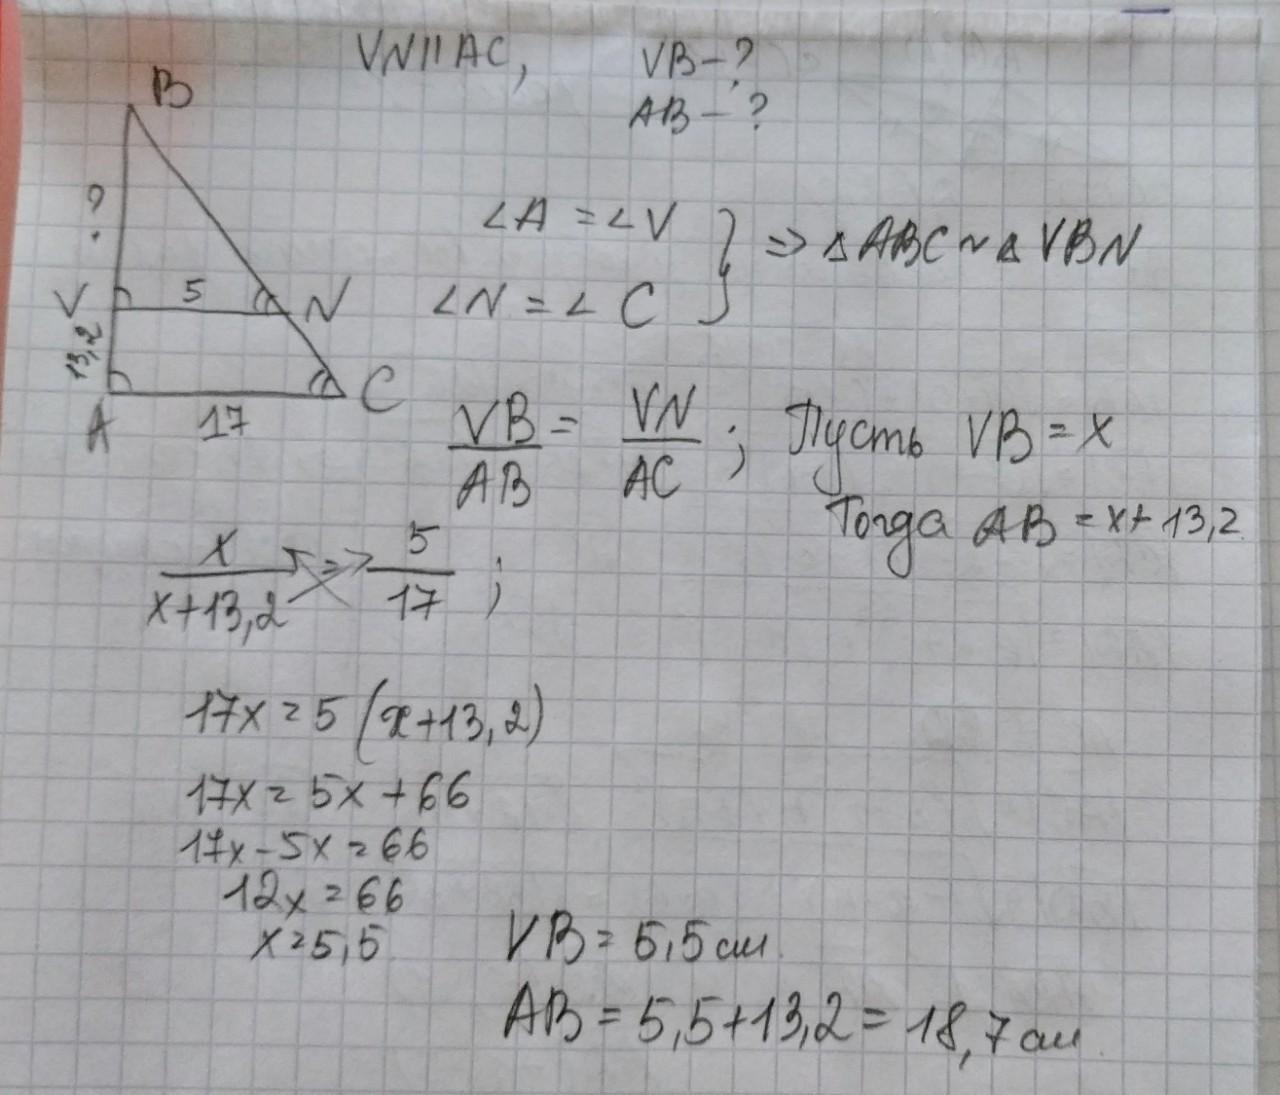 VN||AC, VB-?
AB-?
B
?
V 5 N
13,2
A 17 C
∠A = ∠V
∠N = ∠C } => △ABC ~ △VBN
VB/AB = VN/AC ; Пусть VB = x
Тогда AB = x+13,2
x/(x+13,2) = 5/17 ;
17x = 5(x+13,2)
17x = 5x + 66
17x - 5x = 66
12x = 66
x = 5,5
VB = 5,5 см.
AB = 5,5+13,2 = 18,7 см.